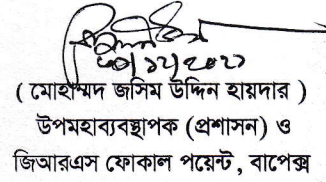 ( মোহাম্মদ জসিম উদ্দিন হায়দার )
উপমহাব্যবস্থাপক (প্রশাসন) ও
জিআরএস ফোকাল পয়েন্ট, বাপেক্স